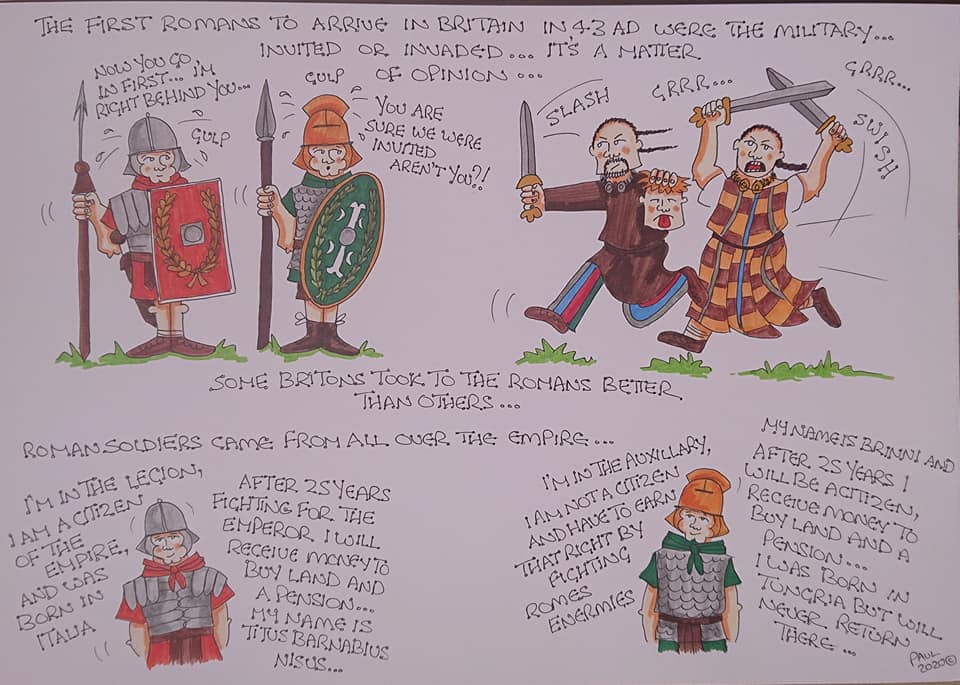 THE FIRST ROMANS TO ARRIVE IN BRITAIN IN 43 AD WERE THE MILITARY...
INVITED OR INVADED... IT'S A MATTER
OF OPINION...
NOW YOU GO
IN FIRST... I'M
RIGHT BEHIND YOU...
GULP
GULP
YOU ARE
SURE WE WERE
INVITED
AREN'T YOU?!
SLASH
GRRR...
GRRR...
SWISH
SOME BRITONS TOOK TO THE ROMANS BETTER
THAN OTHERS...
ROMAN SOLDIERS CAME FROM ALL OVER THE EMPIRE...
I'M IN THE LEGION,
I AM A CITIZEN
OF THE
EMPIRE,
AND WAS
BORN IN
ITALIA
AFTER 25 YEARS
FIGHTING FOR THE
EMPEROR I WILL
RECEIVE MONEY TO
BUY LAND AND
A PENSION...
MY NAME IS
TITUS BARNABIUS
NISUS...
I'M IN THE AUXILLARY,
I AM NOT A CITIZEN
AND HAVE TO EARN
THAT RIGHT BY
FIGHTING
ROMES
ENERMIES
MY NAME IS BRINNI AND
AFTER 25 YEARS I
WILL BE A CITIZEN,
RECEIVE MONEY TO
BUY LAND AND A
PENSION...
I WAS BORN IN
TUNGRIA BUT WILL
NEVER RETURN
THERE...
PAUL
2020©